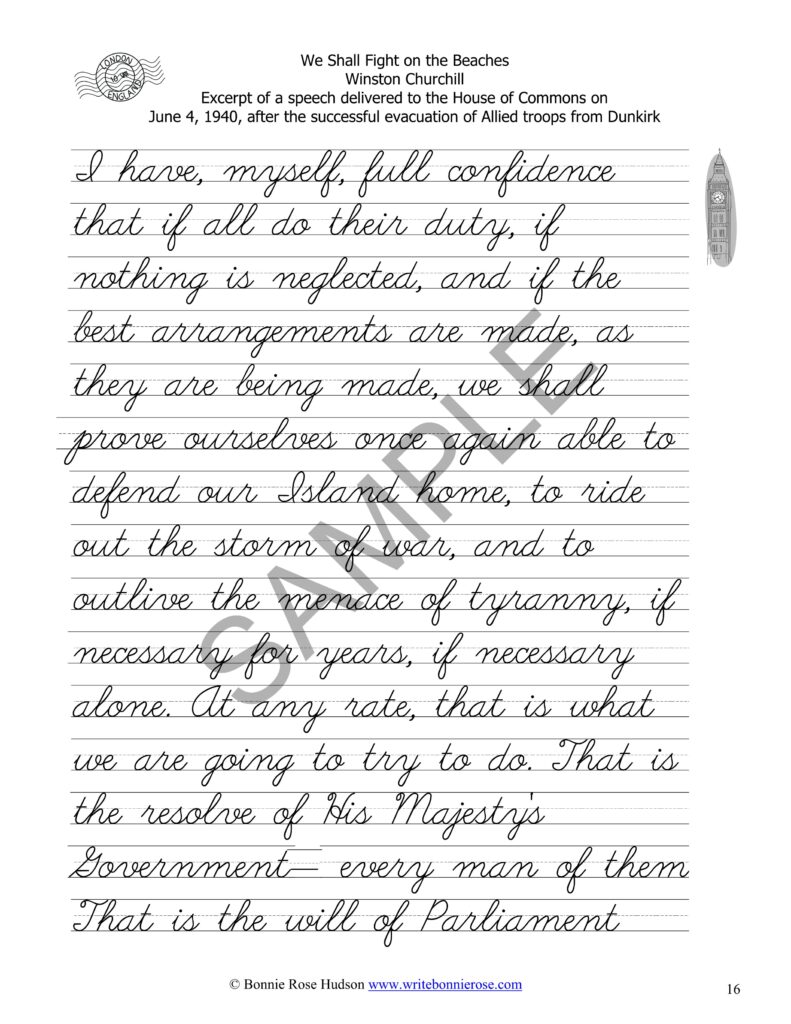 LONDON
ENGLAND
We Shall Fight on the Beaches
Winston Churchill
Excerpt of a speech delivered to the House of Commons on
June 4, 1940, after the successful evacuation of Allied troops from Dunkirk
I have, myself, full confidence
that if all do their duty, if
nothing is neglected, and if the
best arrangements are made, as
they are being made, we shall
prove ourselves once again able to
defend our Island home, to ride
out the storm of war, and to
outlive the menace of tyranny, if
necessary for years, if necessary
alone. At any rate, that is what
we are going to try to do. That is
the resolve of His Majesty's
Government— every man of them
That is the will of Parliament
SAMPLE
© Bonnie Rose Hudson www.writebonnierose.com
16